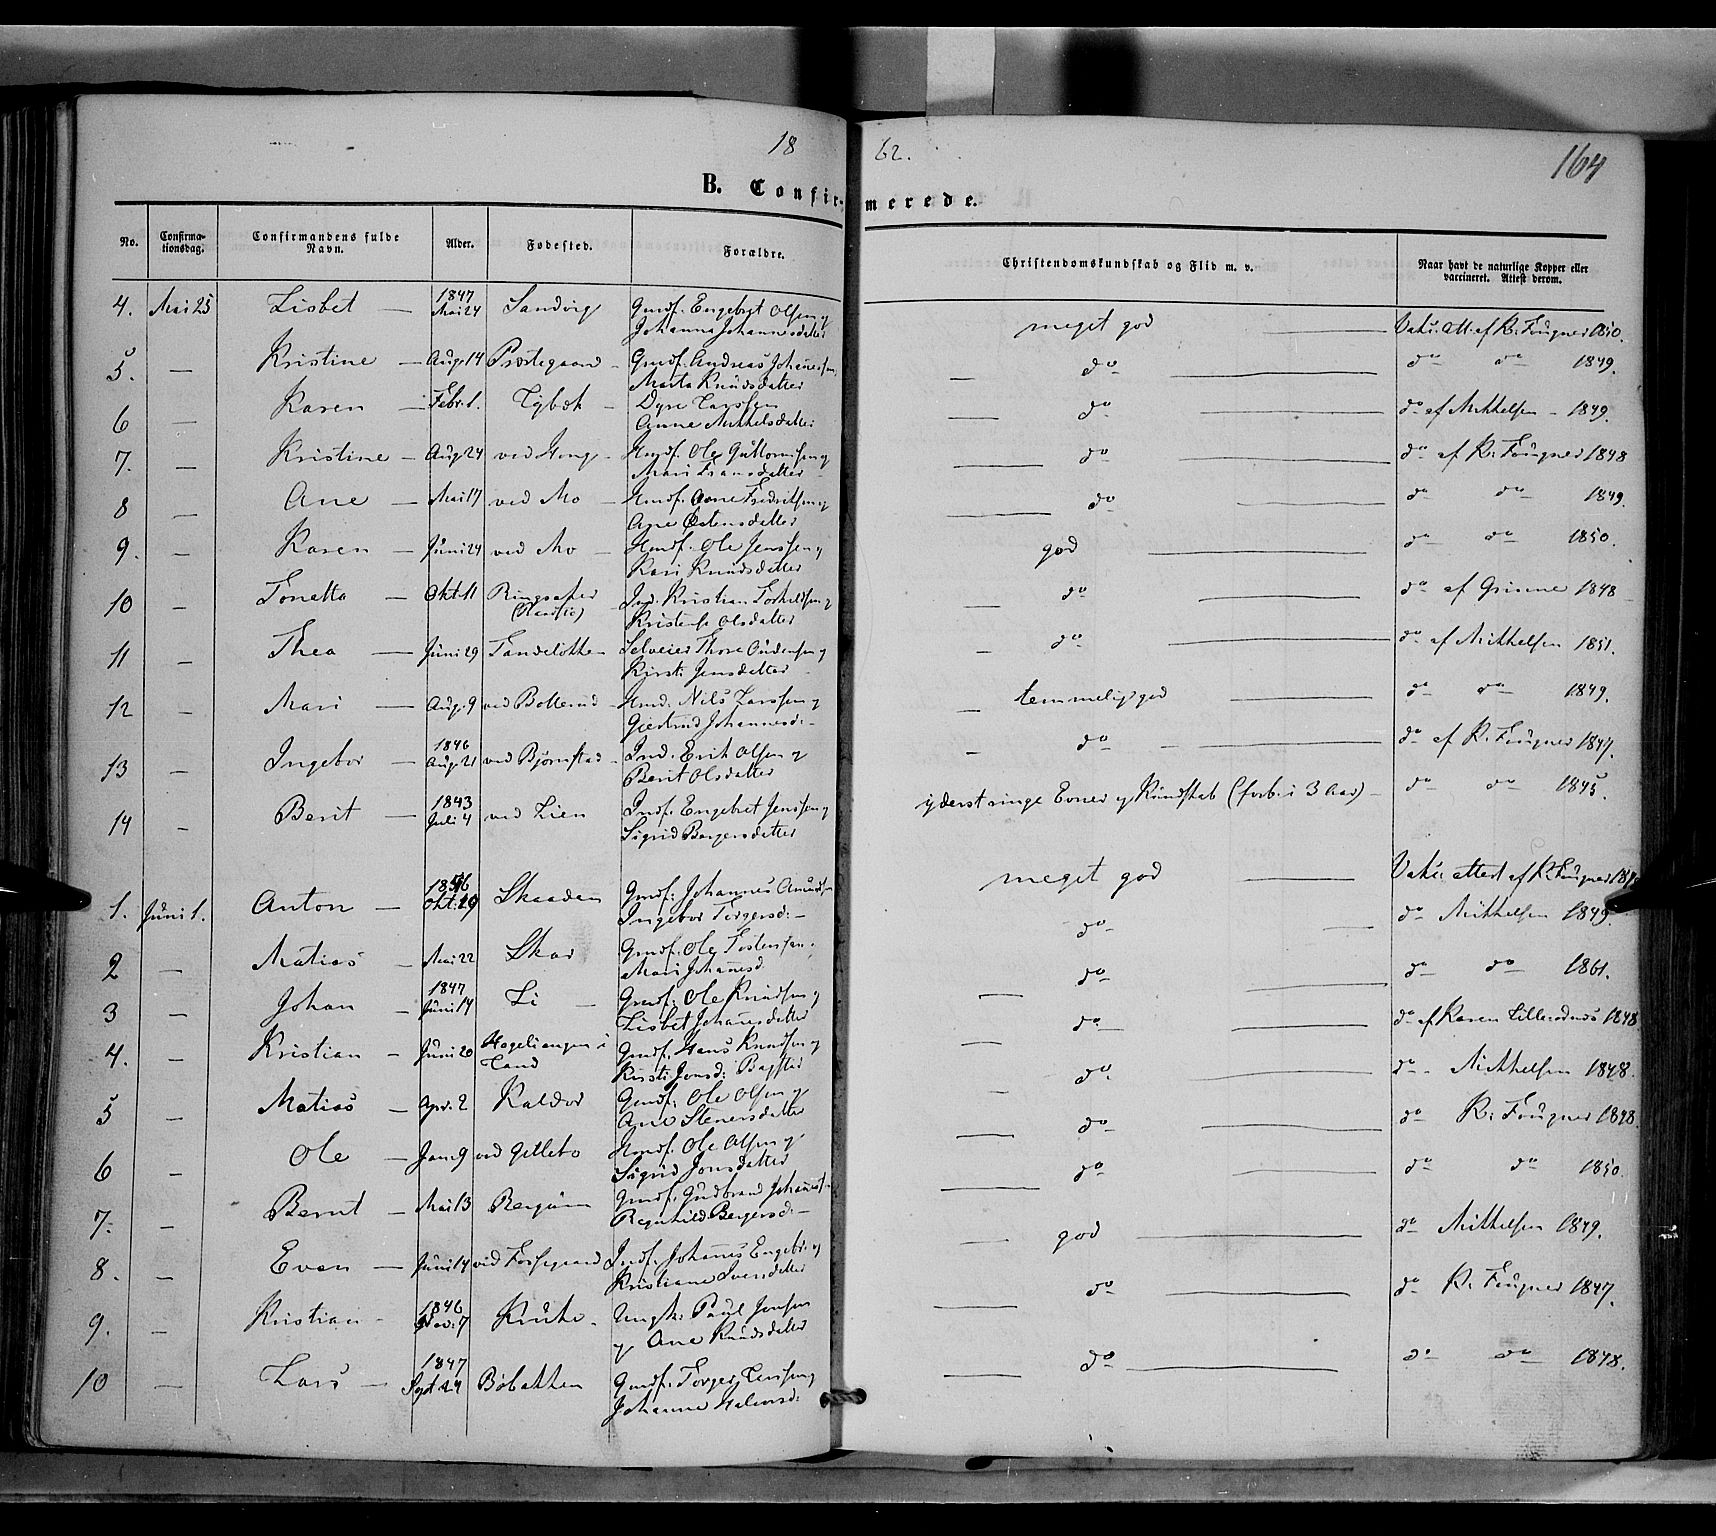 18
62.
164
B. Confir-
merede.
No. Confirma-tionsdag. Confirmandens fulde Navn. Alder. Fødested. Forældre. Christendomskundskab og Flid m. v. Naar havt de naturlige Kopper eller vaccineret. Attest derom.
4. Mai 25 Lisbet — 1847 Mai 24 Sandvig Gmdf. Engebrgt Olsen og Johanna Johannesdatter meget god — Vaks. att. af R. Fougner 1850.
5. — Kristine — Aug. 14 Præstegaard – Gmdf. Andreas Johannessen, Marta Knudsdatter — do — do do 1849.
6 — Karen — Febr. 1. — Dyre Larssen Anne Mikkelsdatter — do — do af Mikkelsen – 1849.
7. — Kristine — Aug 24 ved Hong – Hmdf. Ole Guttormsen og Mari Fransdatter — do — do af R. Fougner 1848
8 — Ane — Mai 17 ved Mo – Hmdf. Arne Fredriksen og Ane Østensdatter — do — do do 1849.
9. — Karen — Juni 24 ved Mo – Hmdf. Ole Jenssen og Kari Knudsdatter god — do do 1850.
10 — Tonetta — Okt 11 Ringsaker Ind. Kristian Torkildsen og Olsdatter — do — do af Grimme 1848
11 — Thea — Juni 29 – Selveier Thore Audensen og Kirsti Jensdatter — do — do af Mikkelsen 1851.
12 — Mari — Aug. 9 ved Bollerud – Hmd. Nils Larssen og Giertrud Johannesd: – temmelig god — do do 1849.
13 — Ingebor — 1846 Aug. 21 ved Bjørnstad – Ind. Erik Olsen og Berit Olsdatter — do — do af R. Fougner 1847.
14 — Berit — 1843 Juli 4 ved Lien Indf. Engebret Jenssen og Sigrid Bergersdatter yderst ringe Evner og Kundskab (forb. i 3 Aar) – do do 1845.
1. Juni 1. Anton — Okt. 29 Skaaden Gmdf. Johannes Amundsen Ingebor Torgersd: – meget god — Vaks. attest af R. Fougner
2 — Matias — Mai 22 Skar Gmdf. Ole Tostensen. Mari Johannesd. do — do Mikkelsen 1849.
3 — Johan — 1847 Juni 14 Li — Gmdf. Ole Knudsen og Lisbet Johannesdatter — do — do do 1861.
4. — Kristian — Juni 20 i Land Gmdf. Hans Knudsen og Kirsti Jonsd: — do — do af Karen 1848.
5 — Matias — Apr. 2 Kaldor Gmdf. Ole Olsen og Ane Stenersdatter — do. — do – Mikkelsen 1848.
6 — Ole — Jan. 9 ved Gillebo Hmdf. Ole Olsen og Sigrid Jonsdatter — do — do R. Fougner 1848.
7. — Bernt — Mai 13 Bergum Gmdf. Gudbrand Johannes Regnhild Bergersd: – — do — do do 1850.
8. — Even — Juni 14 ved Forsegaard Indf. Johannes Engebr. og Kristiane Svensdatter — god — do Mikkelsen 1849.
9. — Kristian – 1846 7 Kruke – Ungk. Paul Jonsen og Ane Knudsdatter — do — do R. Fougner 1847.
10 — Lars — 1847 Sept 24 Bobakken Gmdf. Torger Larssen og Johanne Halvorsd: — do — do do 1848.